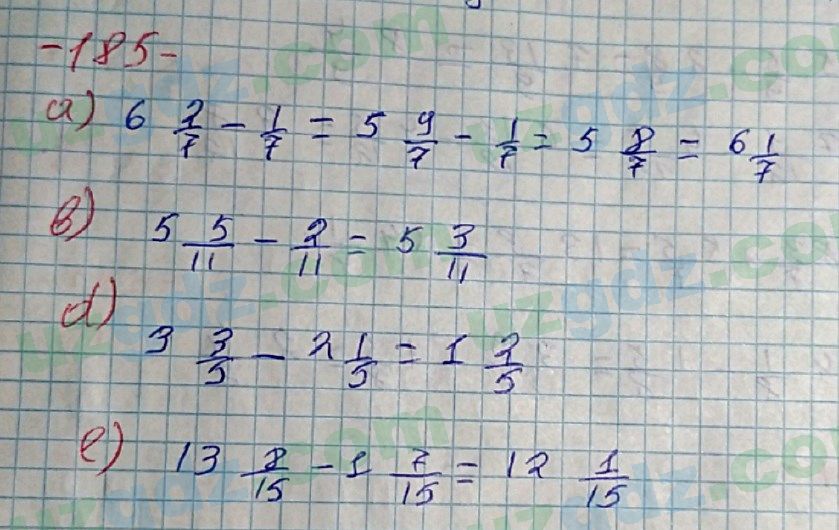 -185-
a) 6 2/7 - 1/7 = 5 9/7 - 1/7 = 5 8/7 = 6 1/7
b) 5 5/11 - 2/11 = 5 3/11
d) 3 3/5 - 2 1/5 = 1 2/5
e) 13 8/15 - 1 7/15 = 12 1/15
uzgdz.com